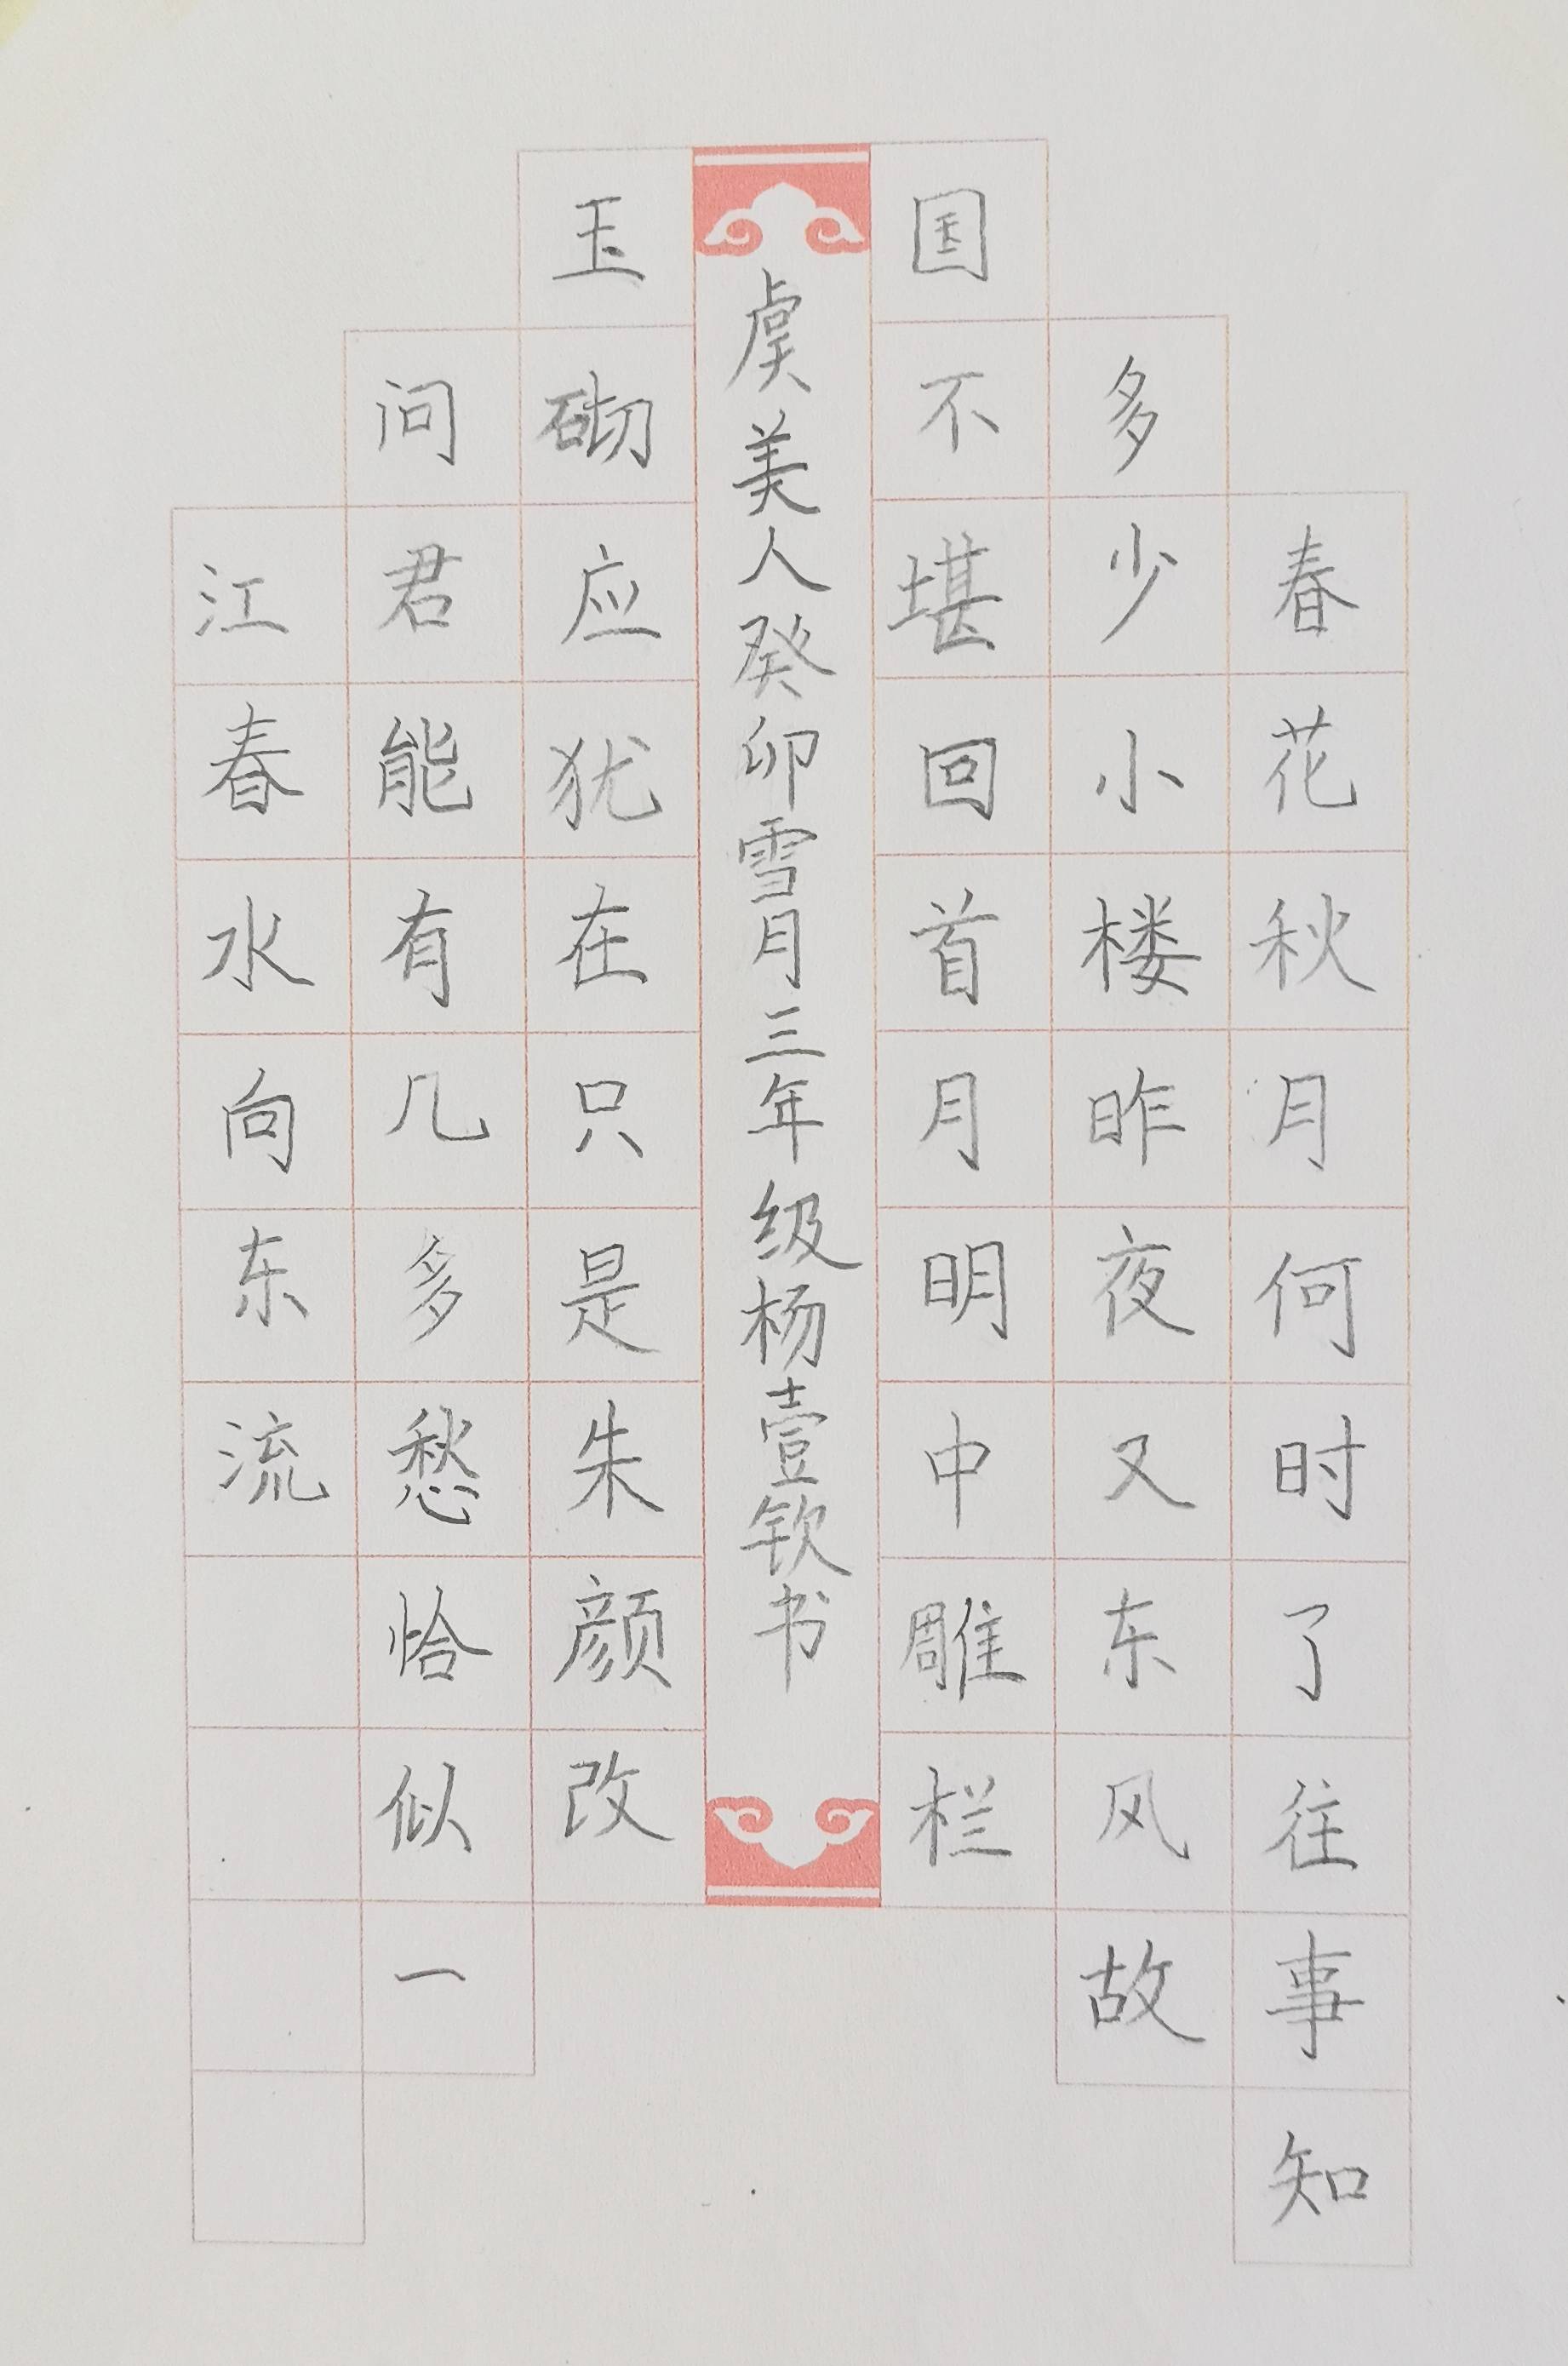 春花秋月何时了往事知
多少小楼昨夜又东风故
国不堪回首月明中雕栏
虞美人癸卯雪月三年级杨壹钦书
玉砌应犹在只是朱颜改
问君能有几多愁恰似一
江春水向东流